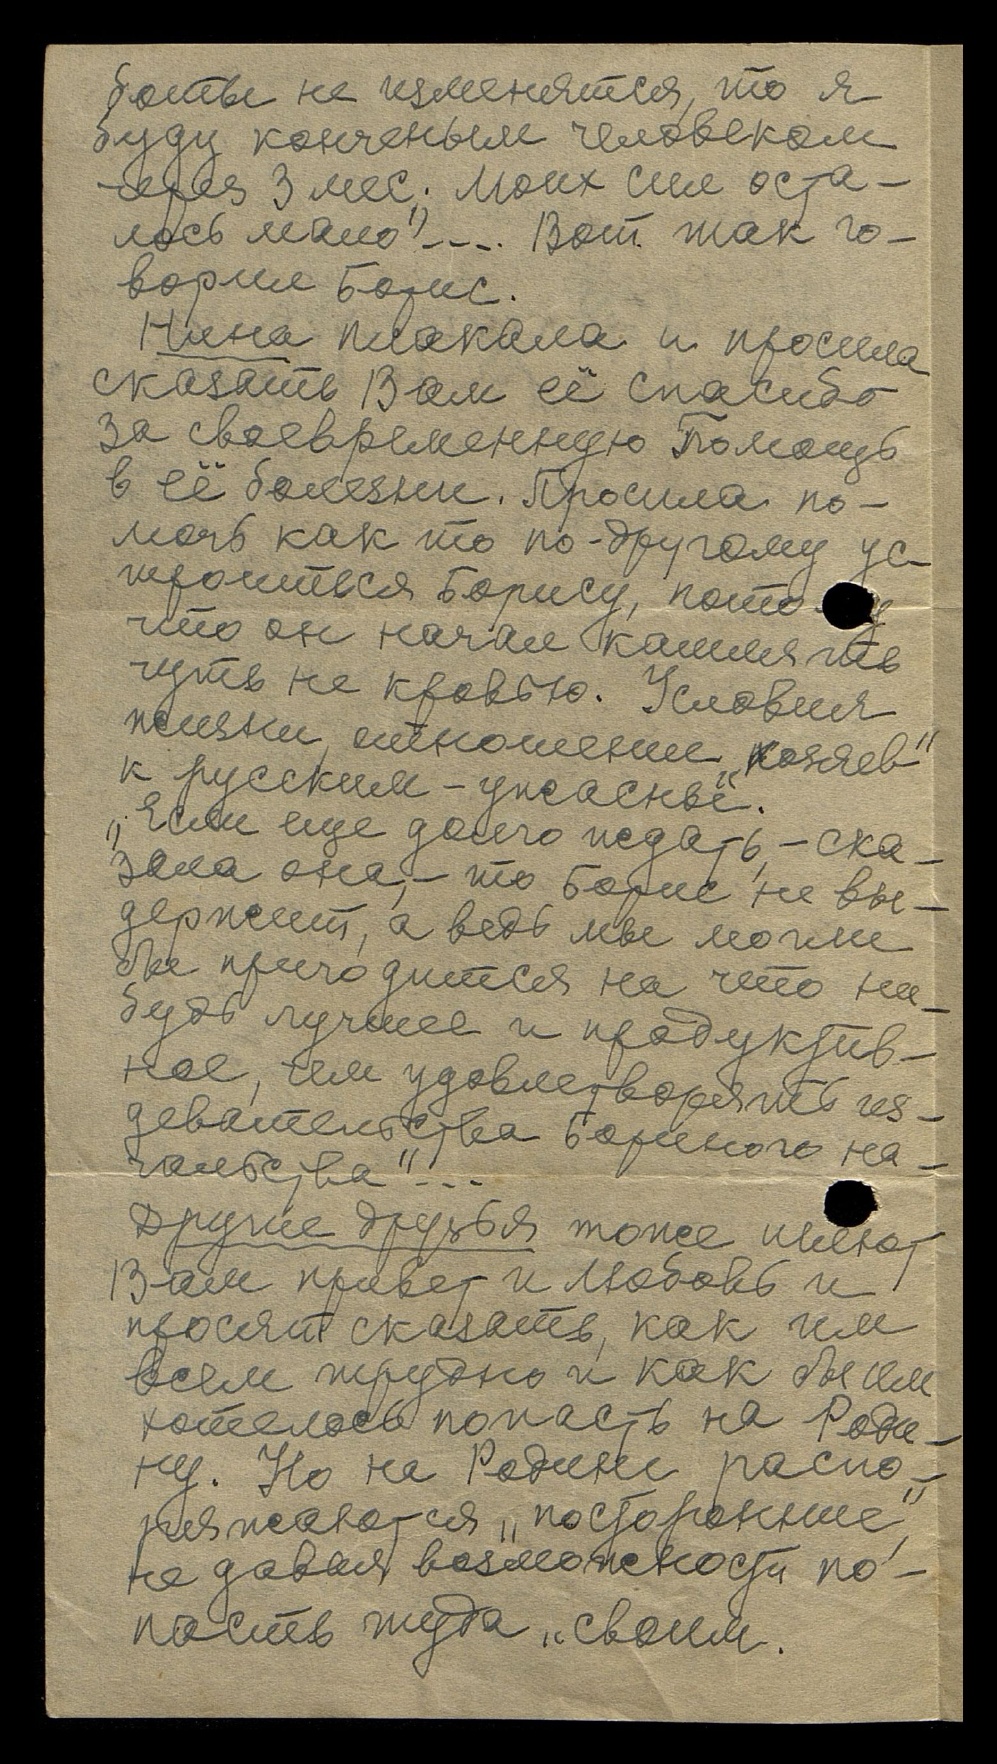 боты не изменятся, то я
буду конченым человеком
через 3 мес. Моих сил оста-
лось мало"... Вот так го-
ворил Борис.
Нина плакала и просила
сказать Вам её спасибо
за своевременную Помощь
в её болезни. Просила по-
мочь как то по-другому ус-
троиться Борису, потому
что он начал кашлять
чуть не кровью. Условия
жизни, отношении „хозяев"
к русским - ужасны.
„Если еще долго ждать, - ска-
зала она, - то Борис не вы-
держит, а ведь мы могли
бы пригодится на что ни-
будь лучшее и продуктив-
ное, чем удовлетворять из-
девательства Бориного на-
чальства"...
Другие друзья тоже шлют
Вам привет и любовь и
просят сказать, как им
всем трудно и как бы им
хотелось попасть на Роди-
ну. Но на Родине распо-
ряжаются „посторонние",
не давая возможности по-
пасть туда „своим.